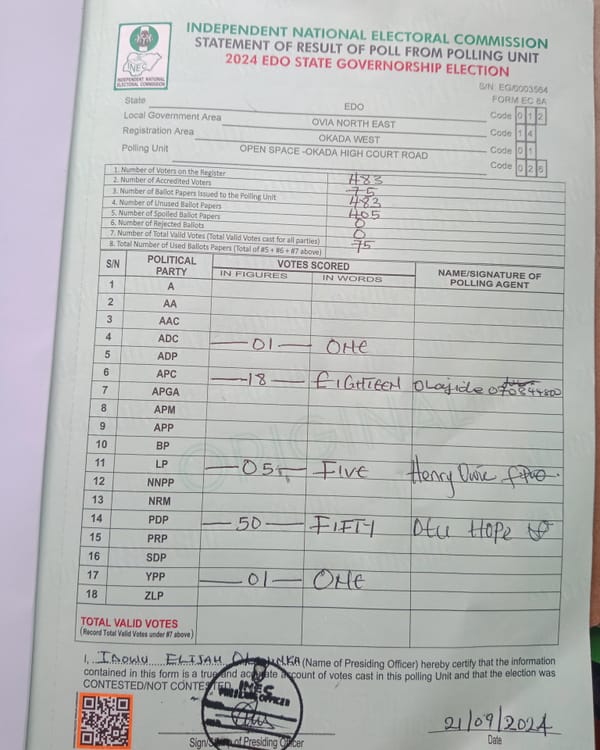 INDEPENDENT NATIONAL ELECTORAL COMMISSION
STATEMENT OF RESULT OF POLL FROM POLLING UNIT
2024 EDO STATE GOVERNORSHIP ELECTION
INEC
INDEPENDENT NATIONAL
ELECTORAL COMMISSION
S/N: EG/0003564
FORM EC 8A
State EDO
Local Government Area OVIA NORTH EAST Code 0 1 2
Registration Area OKADA WEST Code 1 4
Polling Unit OPEN SPACE -OKADA HIGH COURT ROAD Code 0 1
Code 0 2 6
1. Number of Voters on the Register 483
2. Number of Accredited Voters 75
3. Number of Ballot Papers Issued to the Polling Unit 483
4. Number of Unused Ballot Papers 405
5. Number of Spoiled Ballot Papers 0
6. Number of Rejected Ballots 0
7. Number of Total Valid Votes (Total Valid Votes cast for all parties) 75
8. Total Number of Used Ballots Papers (Total of #5 + #6 + #7 above)
S/N POLITICAL PARTY VOTES SCORED NAME/SIGNATURE OF POLLING AGENT
IN FIGURES IN WORDS
1 A
2 AA
3 AAC
4 ADC 01 ONE
5 ADP
6 APC 18 EIGHTEEN Olajide
7 APGA
8 APM
9 APP
10 BP
11 LP 05 FIVE Henry
12 NNPP
13 NRM
14 PDP 50 FIFTY Otu Hope
15 PRP
16 SDP
17 YPP 01 ONE
18 ZLP
ORIGINAL
TOTAL VALID VOTES
(Record Total Valid Votes under #7 above)
I, IDOWU ELIJAH (Name of Presiding Officer) hereby certify that the information
contained in this form is a true and accurate account of votes cast in this polling Unit and that the election was
CONTESTED/NOT CONTESTED
INEC
PRESIDING OFFICER
Sign/Stamp of Presiding Officer
21/09/2024
Date